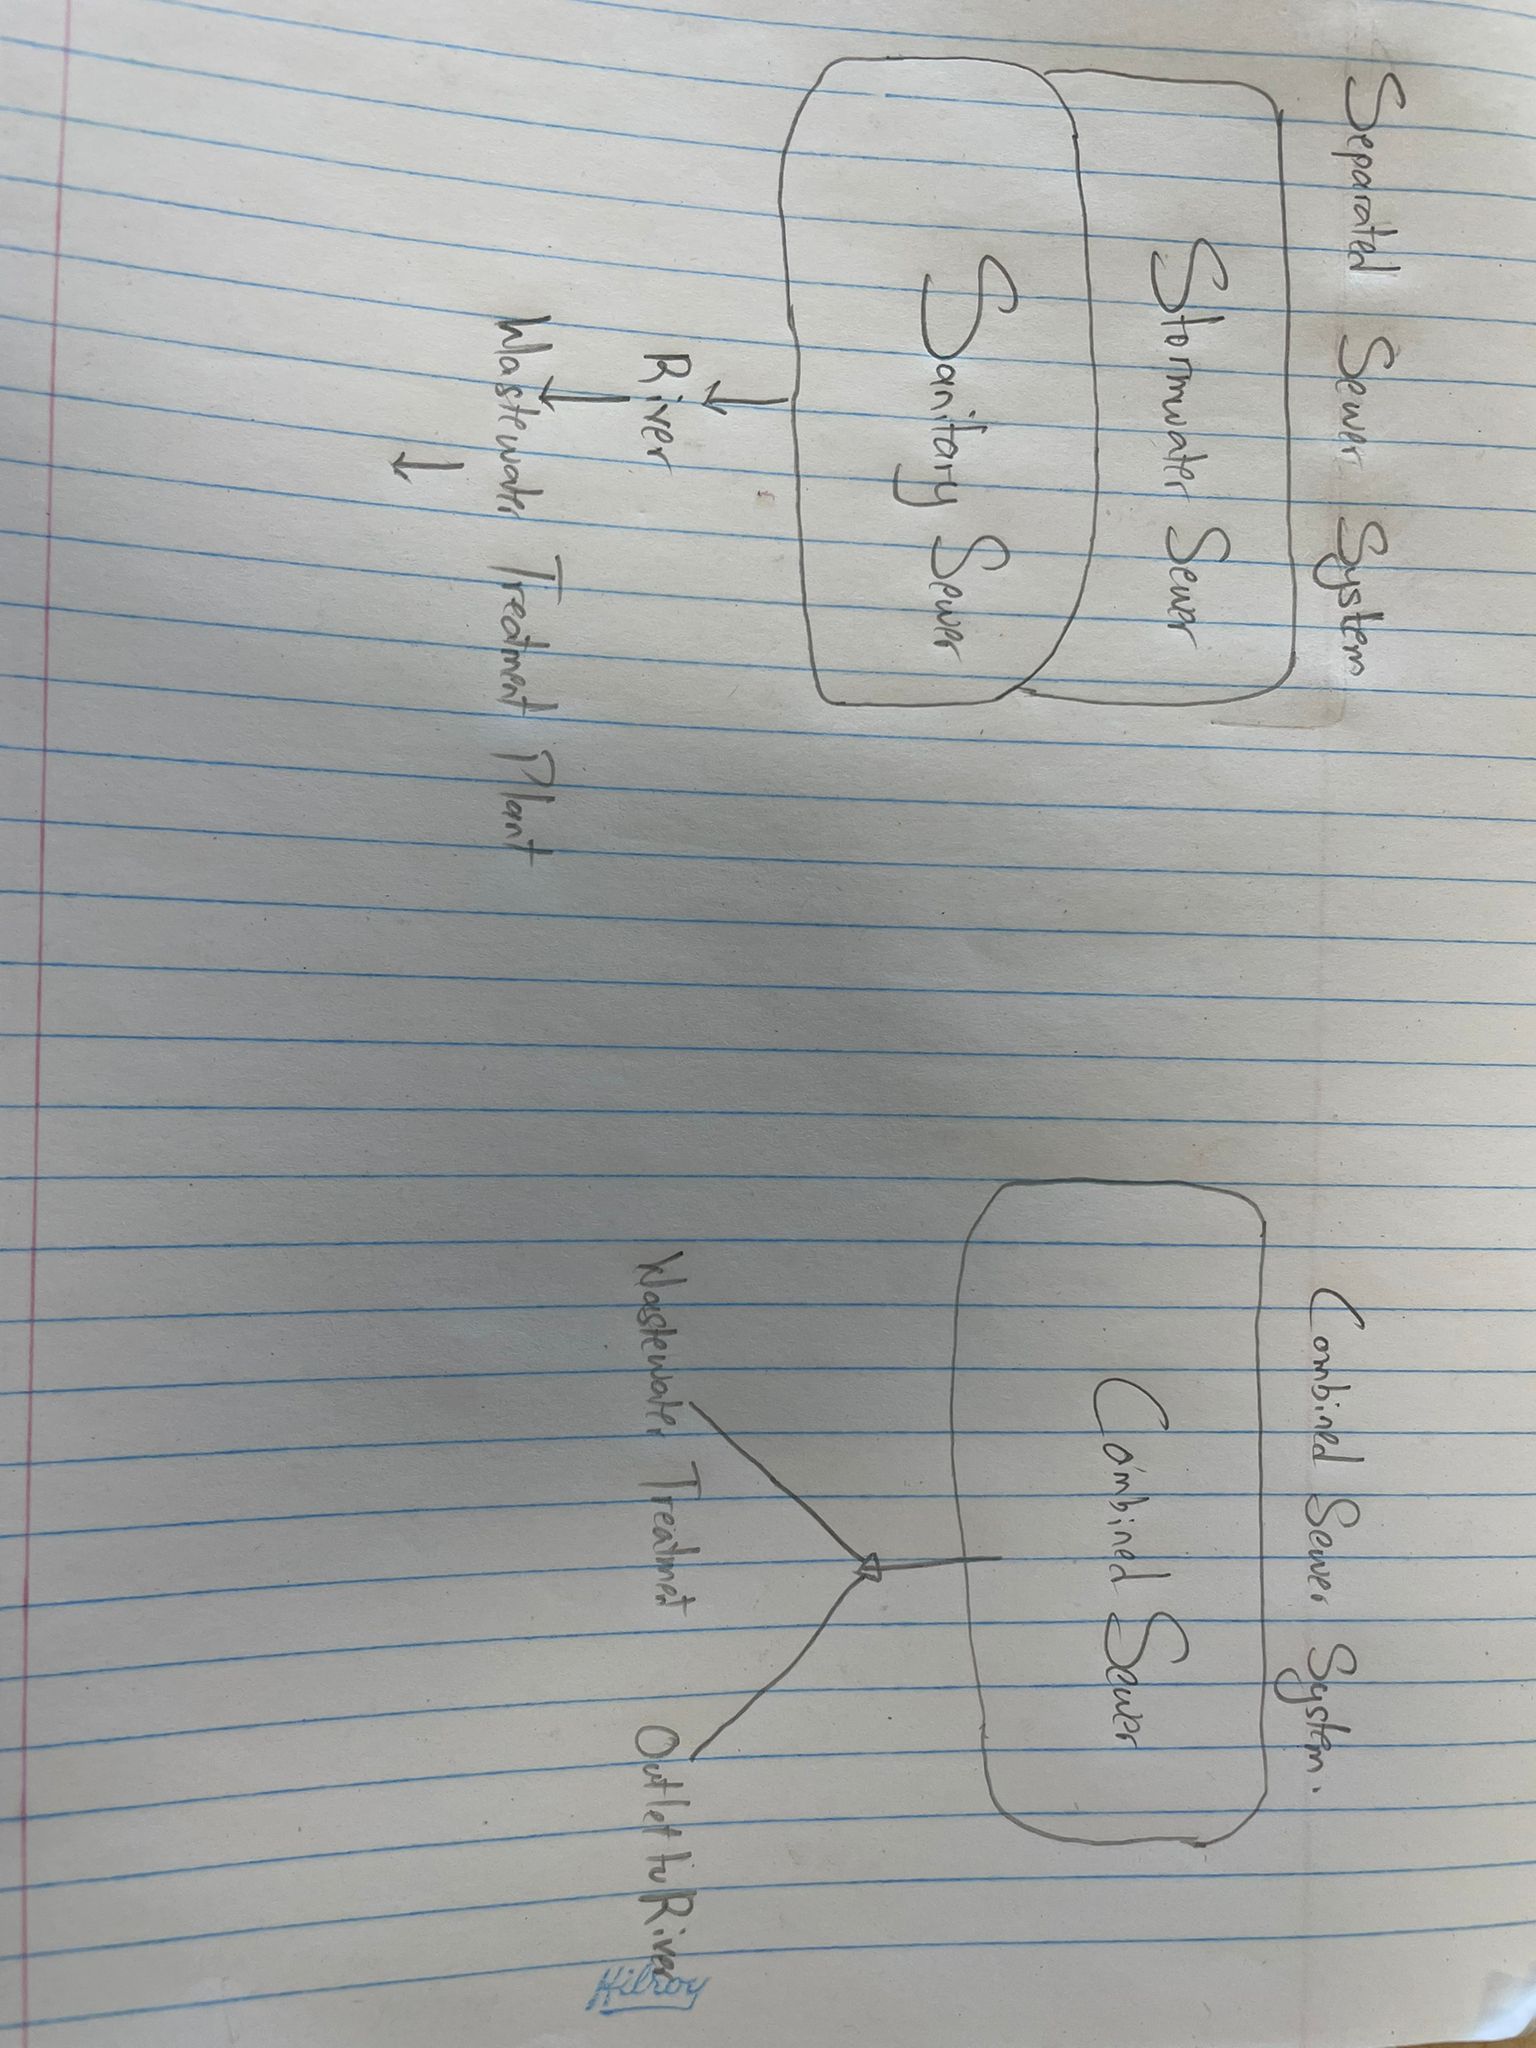 Separated Sewer System
Stormwater Sewer
Sanitary Sewer
River
Wastewater Treatment Plant
Combined Sewer System.
Combined Sewer
Wastewater Treatment
Outlet to River
Hilroy